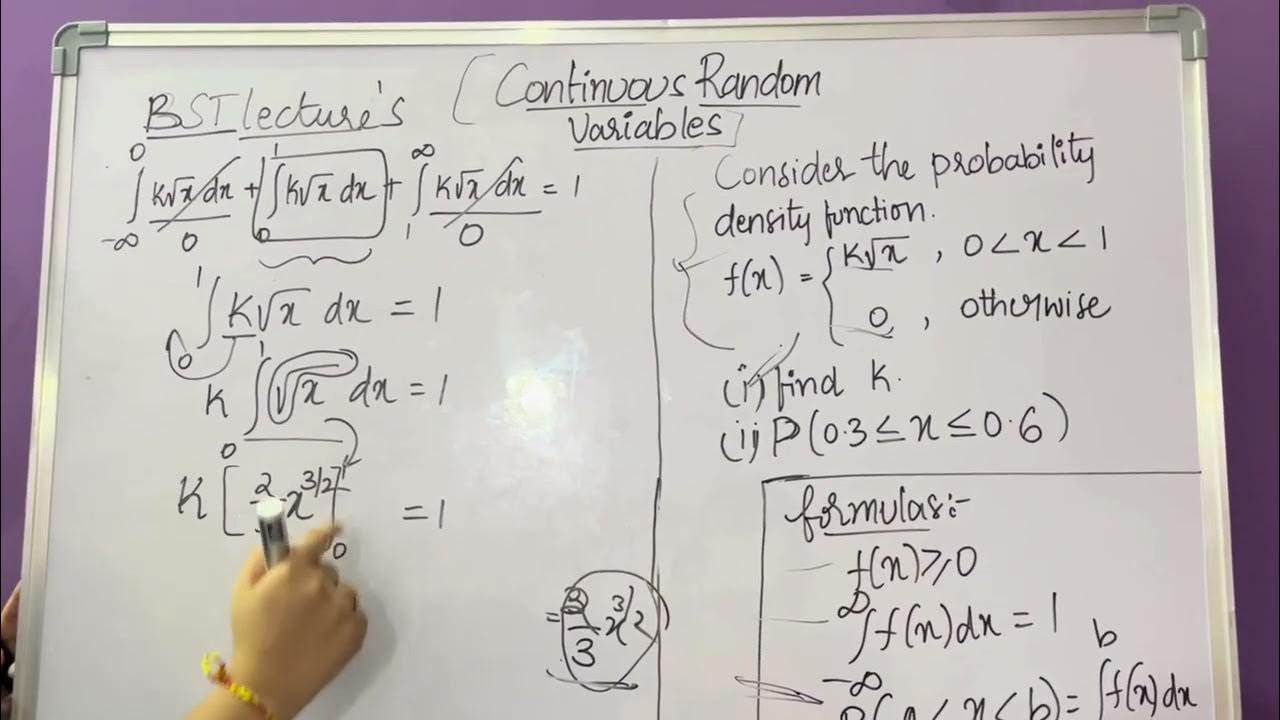 BST lecture's
[Continuous Random
Variables]
∫_{-∞}^{0} k√x dx + ∫_{0}^{1} k√x dx + ∫_{1}^{∞} k√x dx = 1
0 0
∫_{0}^{1} k√x dx = 1
K ∫_{0}^{1} √x dx = 1
K [ 2 x^{3/2} ]_{0}^{1} = 1
= 2/3 x^{3/2}
Consider the probability
density function.
f(x) = { k√x , 0 < x < 1
0 , otherwise
(i) find K.
(ii) P(0.3 ≤ x ≤ 0.6)
formulas:-
f(x) ≥ 0
∫_{-∞}^{∞} f(x) dx = 1
P(a < x < b) = ∫^{b} f(x) dx